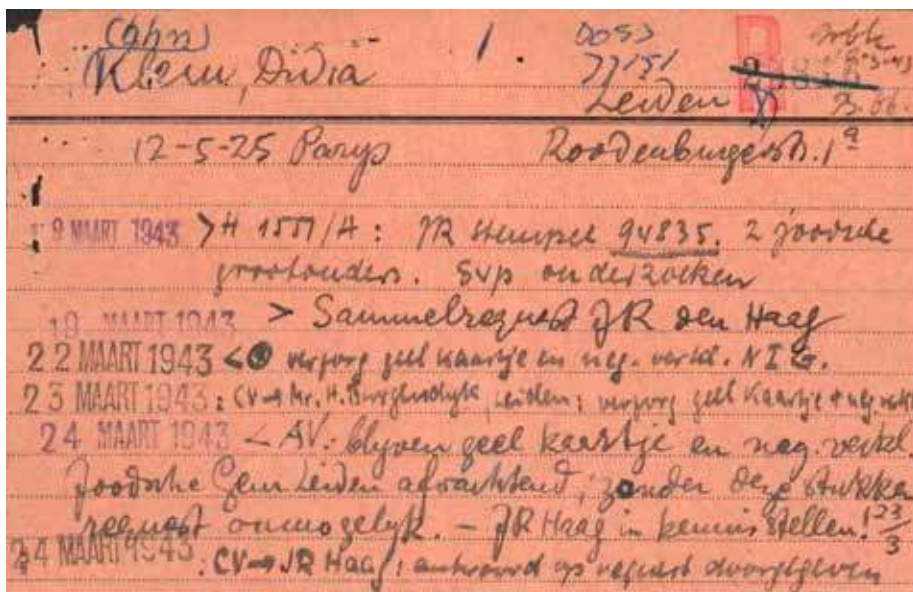 (Cohn) 1. 0053
Klein, Didia 77151
Leiden
12-5-25 Parys Roodenburgerstr. 1a
9 MAART 1943 > H 1557/A: JR Hempel 94835. 2 joodsche
grootouders. Svp onderzoeken
19 MAART 1943 > Sammelrequest JR den Haag
22 MAART 1943 < verzorg geel kaartje en neg. verkl. N I G.
23 MAART 1943: CV→Mr. H. Burgersdyk, Leiden: verzorg geel kaartje + neg. verkl.
24 MAART 1943 < AV: blyven geel kaartje en neg. verkl.
Joodsche Gem Leiden afwachtend, zonder deze stukken
request onmogelyk. – JR Haag in kennis stellen! 23/3
24 MAART 1943: CV→JR Haag: antwoord op request doorgegeven